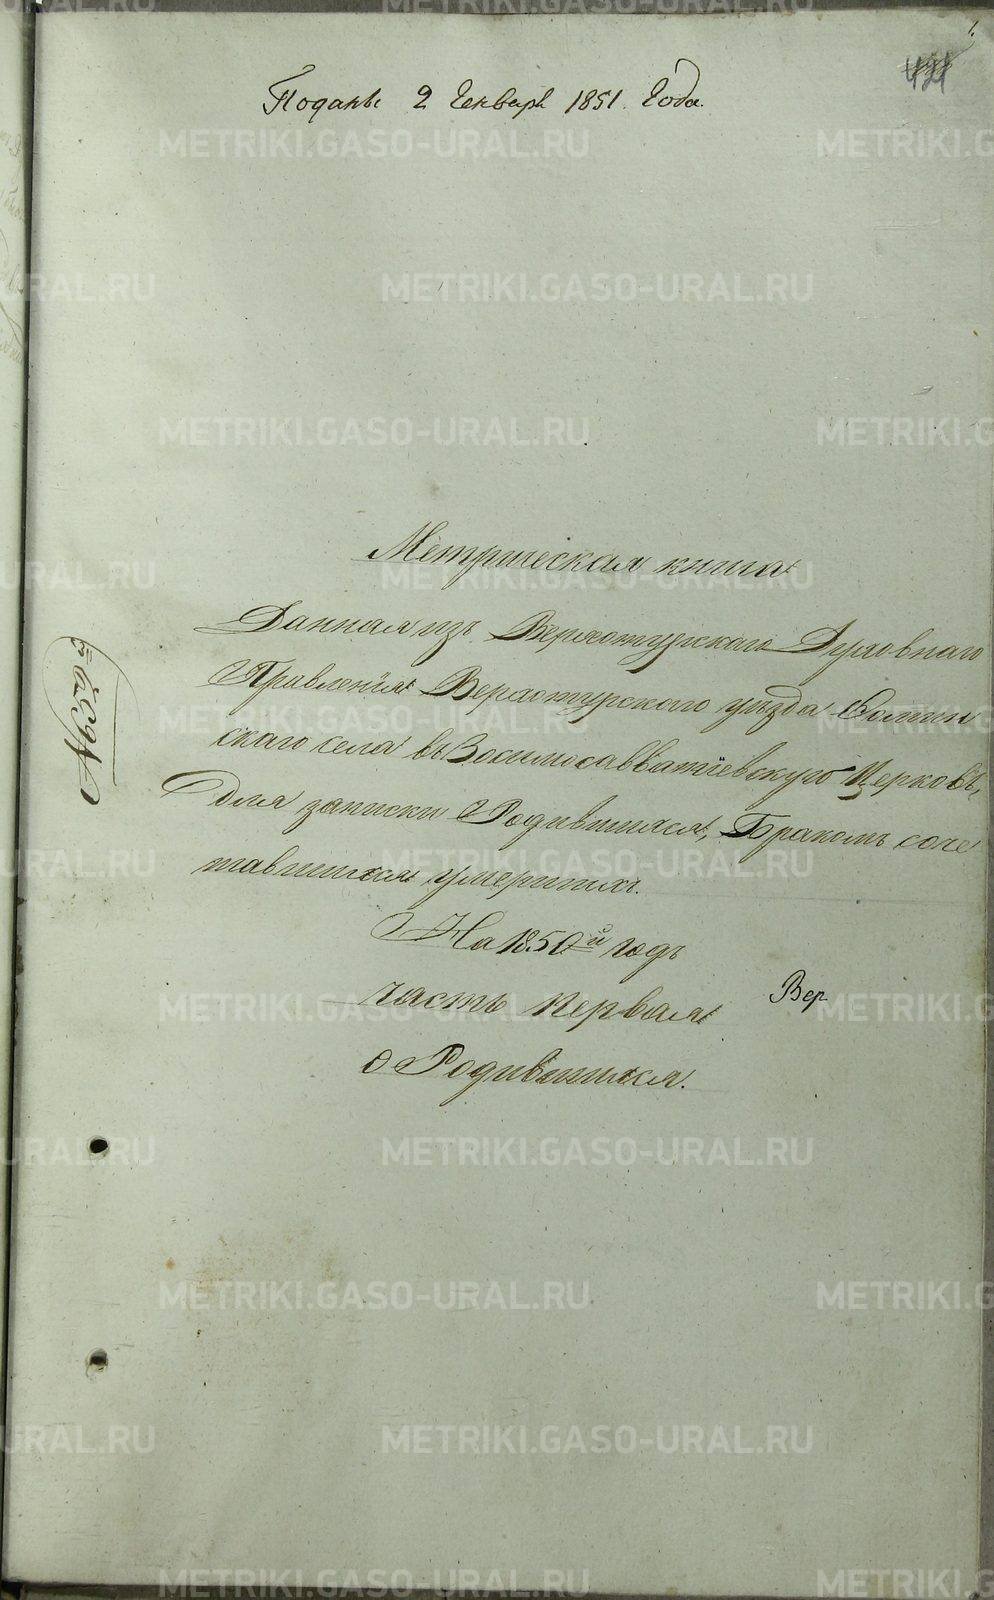 1.
421
Поданъ 2 Генваря 1851. Года.
Метрическая книга
Данная изъ Верхотурскаго Духовнаго
Правленія Верхотурскаго уѣзда
скаго села въ Зосимосавватіевскую Церковь,
для записки Родившихся, Бракомъ соче
тавшихся умершихъ.
На 1850й годъ
часть первая
Вер
о Родившихся.
METRIKI.GASO-URAL.RU